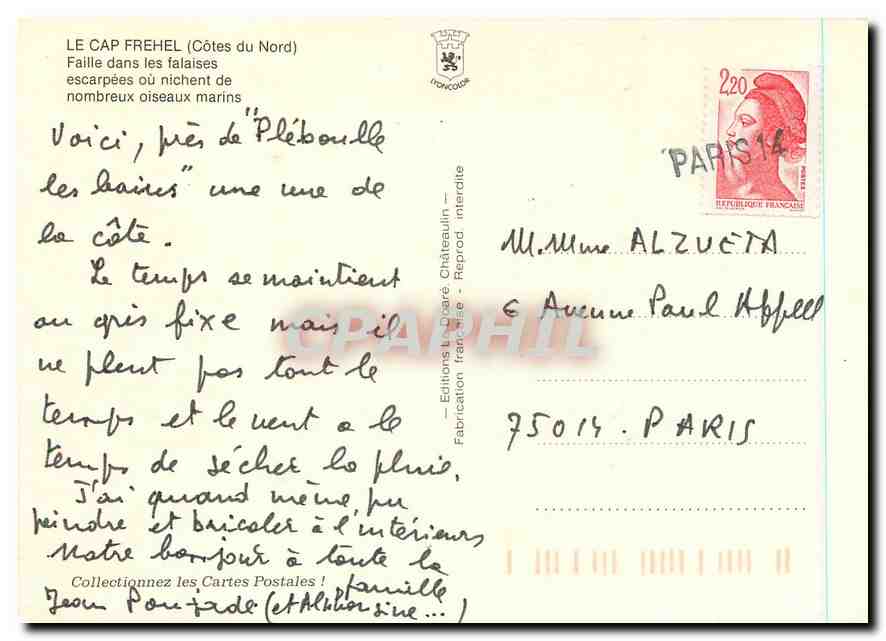 LE CAP FREHEL (Côtes du Nord)
Faille dans les falaises
escarpées où nichent de
nombreux oiseaux marins
LYONCOLOR
Voici, près de "Pléboulle
les bains" une vue de
la côte.
Le temps se maintient
au gris fixe mais il
ne pleut pas tout le
temps et le vent a le
temps de sécher la pluie.
J'ai quand même pu
peindre et bricoler à l'intérieur
Notre bonjour à toute la
famille
Jean Poujade (et Alphonsine...)
Collectionnez les Cartes Postales !
— Editions Le Doaré, Châteaulin —
Fabrication française - Reprod. interdite
CPAPHIL
2,20
POSTES
REPUBLIQUE FRANÇAISE
PARIS 14
M. Mme ALZUETA
6 Avenue Paul Appell
75014 - PARIS